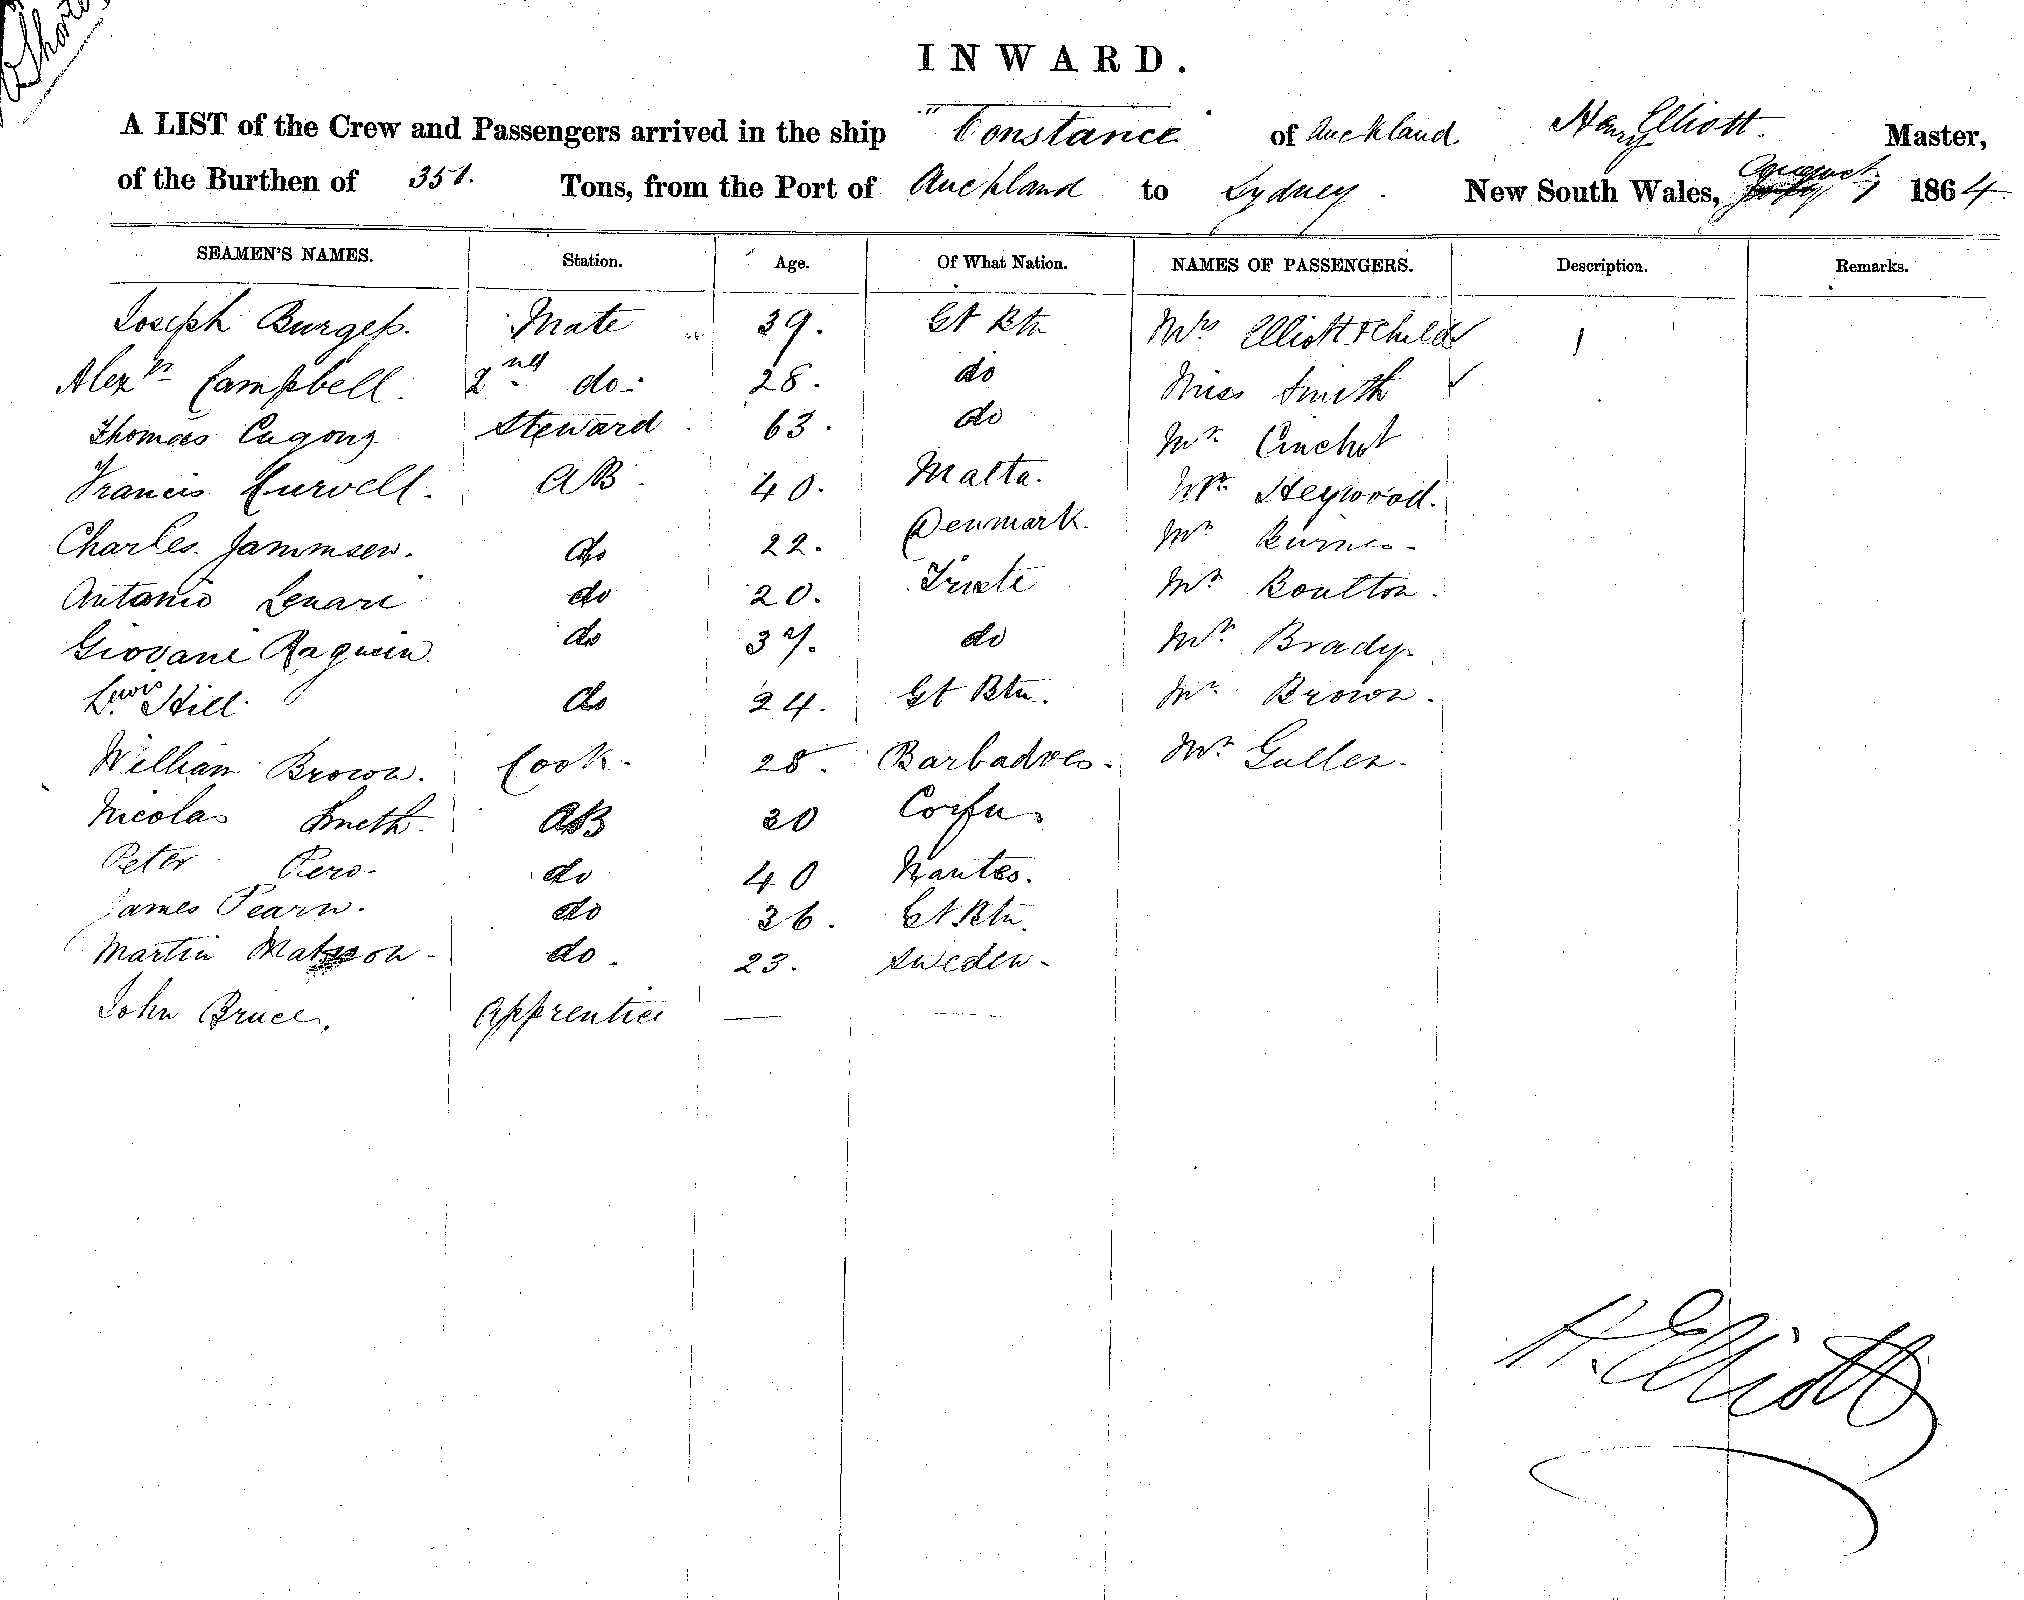 Shorte
INWARD.
A LIST of the Crew and Passengers arrived in the ship "Constance" of Auckland Henry Elliott. Master,
of the Burthen of 351. Tons, from the Port of Auckland to Sydney. New South Wales, August 1 1864
SEAMEN'S NAMES. Station. Age. Of What Nation. NAMES OF PASSENGERS. Description. Remarks.
Joseph Burgess. Mate 39. Gt Btn Mrs Elliott & Child 1
Alexr Campbell. 2nd do. 28. do Miss Smith
Thomas 63. Steward do Mr
Francis Curvell. AB 40. Malta. Mr Heywood.
Charles Jammsen. do 22. Denmark. Mr Burnes.
Antonio Lenari do 20. Trieste Mr Boulton.
Giovani Raguin. do 37. do Mr Brady.
Lewis Hill. do 24. Gt Btn. Mr Brown.
William Brown. Cook. 28. Barbadoes. Mr Gullen.
Nicolas Smith. AB 30 Corfu.
Peter Pero. do 40 Nantes.
James Pearn. do 36. Gt Btn.
Martin Matsson do. 23. Sweden.
John Bruce, Apprentice — —
H. Elliott